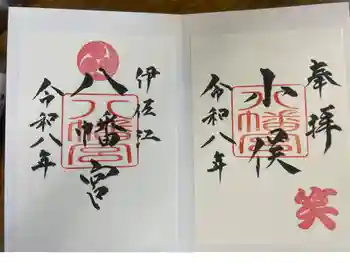 奉拝
小俣
令和八年
笑
伊佐江
八幡宮
令和八年
八幡宮